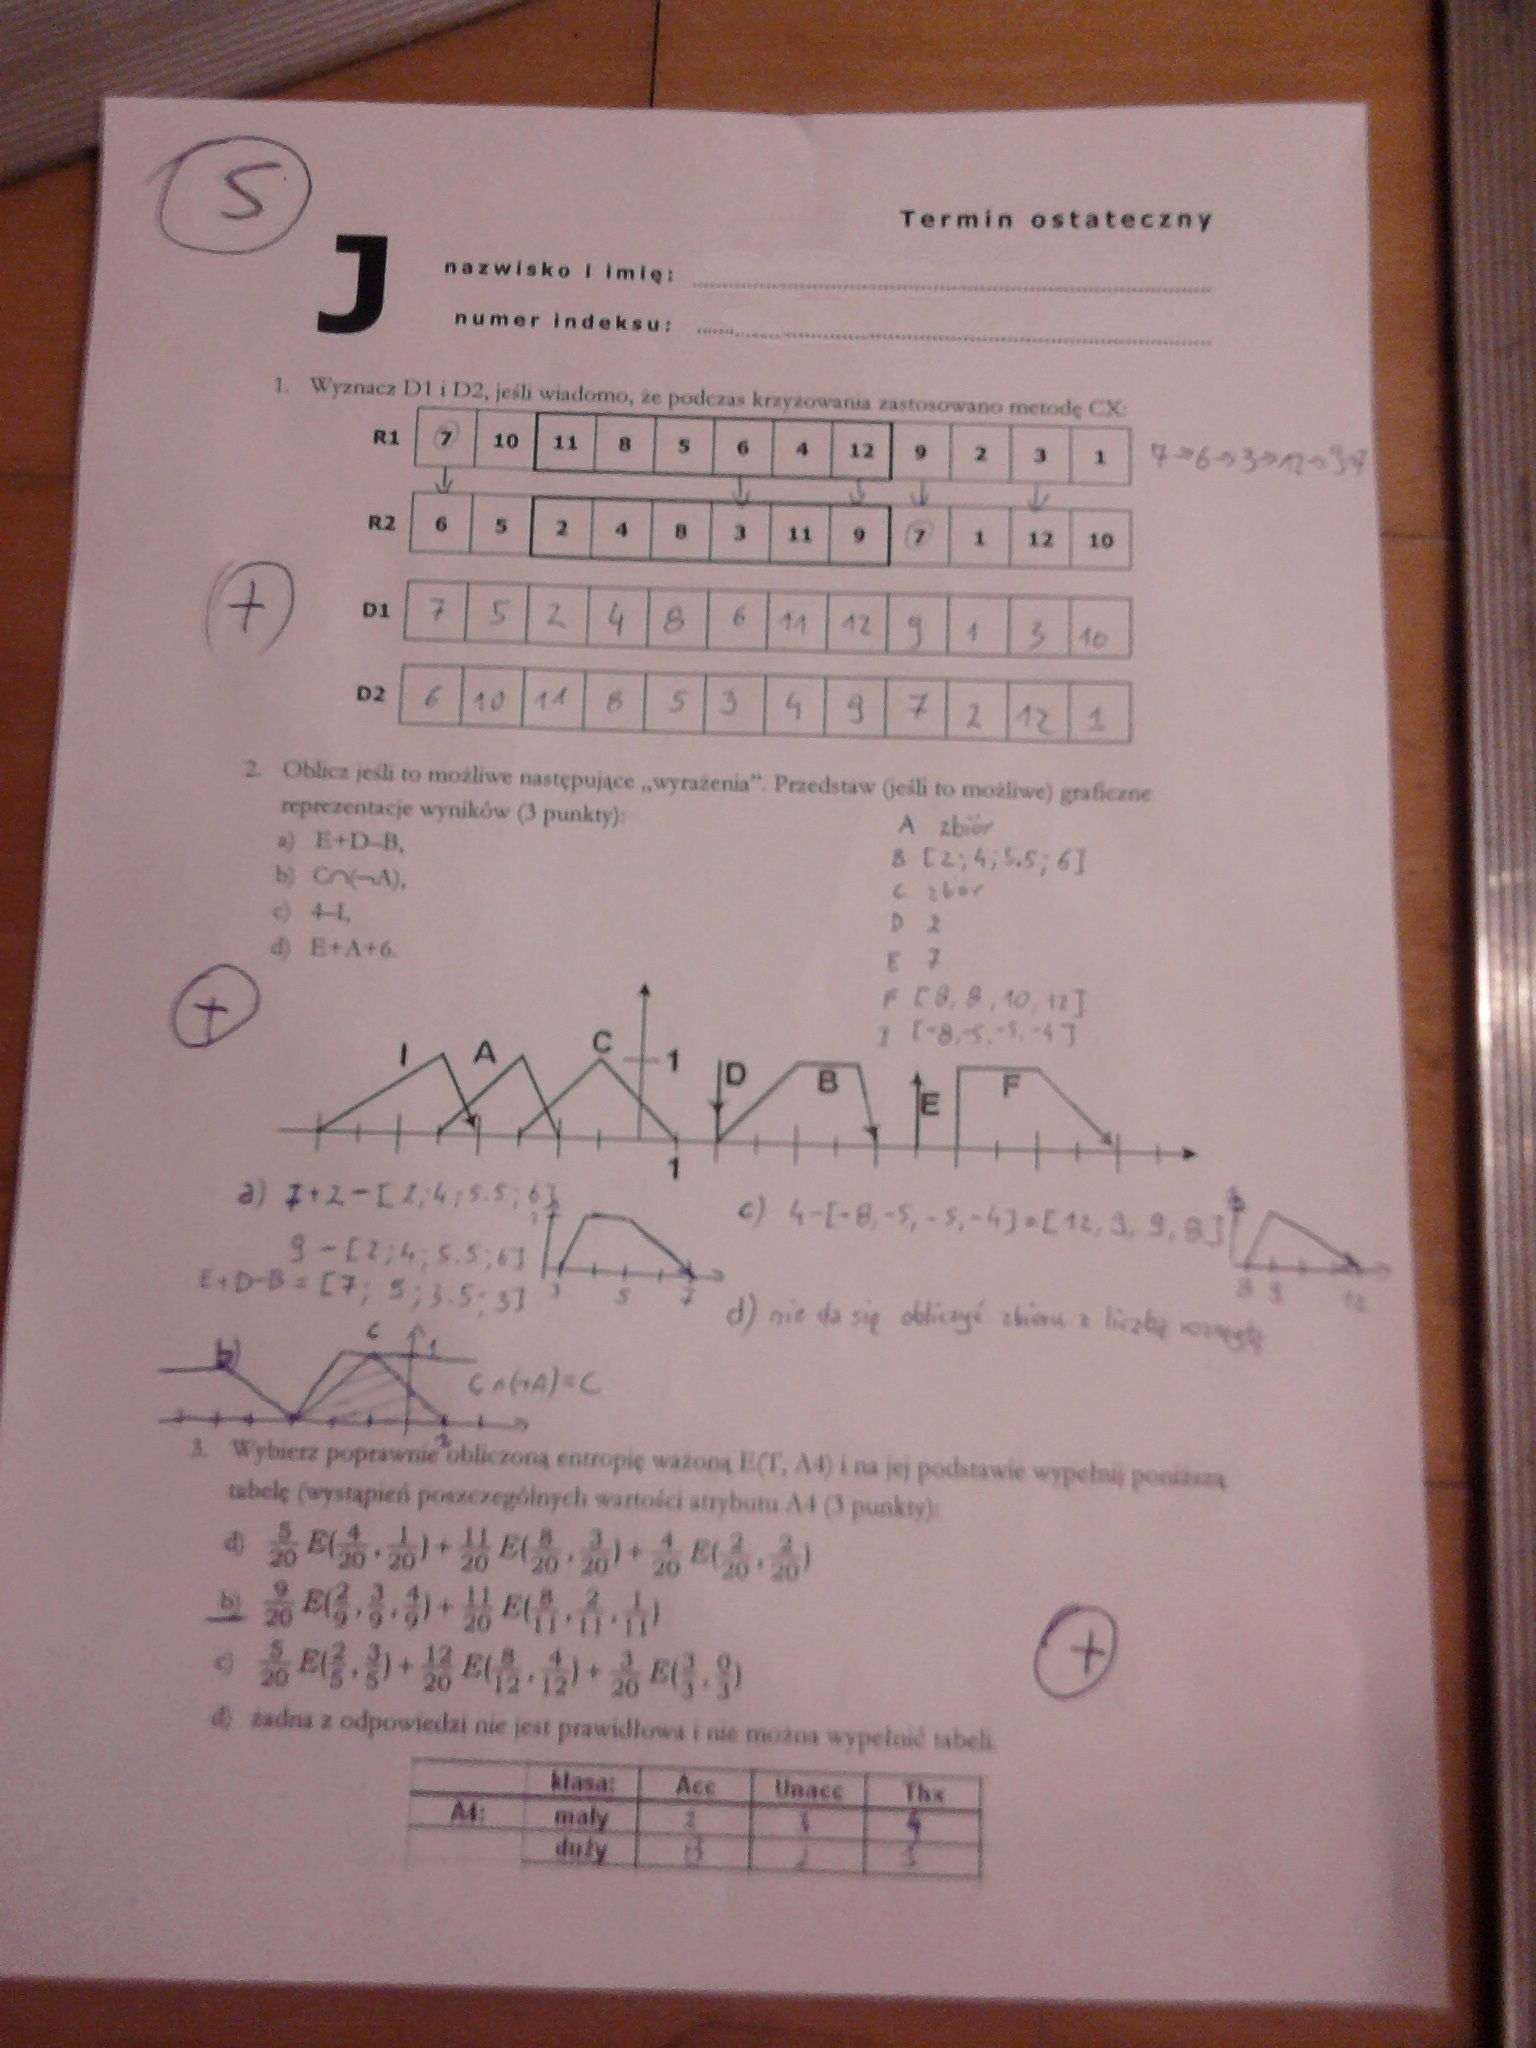 5
Termin ostateczny
J
nazwisko i imię:
numer indeksu:
1. Wyznacz D1 i D2, jeśli wiadomo, że podczas krzyżowania zastosowano metodę CX:
R1 7 10 11 8 5 6 4 12 9 2 3 1 7→6→3→12→9→7
R2 6 5 2 4 8 3 11 9 7 1 12 10
+
D1 7 5 2 4 8 6 11 12 9 1 3 10
D2 6 10 11 8 5 3 4 9 7 2 12 1
2. Oblicz jeśli to możliwe następujące „wyrażenia”. Przedstaw (jeśli to możliwe) graficzne
reprezentacje wyników (3 punkty):
a) E+D–B,
b) C∩(¬A),
c) 4–I,
d) E+A+6.
A zbiór
B [2; 4; 5.5; 6]
C zbiór
D 2
E 7
F [8, 8, 10, 12]
I [-8, -5, -5, -4]
+
I A C 1 D B E F
1
a) 7+2-[2; 4; 5.5; 6]
9-[2; 4; 5.5; 6]
E+D-B = [7; 5; 3.5; 3]
1
3 5 7
c) 4-[-8, -5, -5, -4] = [12, 9, 9, 8]
8 9 12
d) nie da się obliczyć zbioru z liczbą rozmytą
b) C 1
C∩(¬A)=C
3. Wybierz poprawnie obliczoną entropię ważoną E(T, A4) i na jej podstawie wypełnij poniższą
tabelę (wystąpień poszczególnych wartości atrybutu A4 (3 punkty):
d) 5/20 E(4/20, 1/20) + 11/20 E(8/20, 3/20) + 4/20 E(2/20, 2/20)
b) 9/20 E(2/9, 3/9, 4/9) + 11/20 E(8/11, 2/11, 1/11)
c) 5/20 E(2/5, 3/5) + 12/20 E(8/12, 4/12) + 3/20 E(3/3, 0/3)
d) żadna z odpowiedzi nie jest prawidłowa i nie można wypełnić tabeli.
+
klasa: Acc Unacc Thx
A4: mały 2 3 4
duży 8 2 1